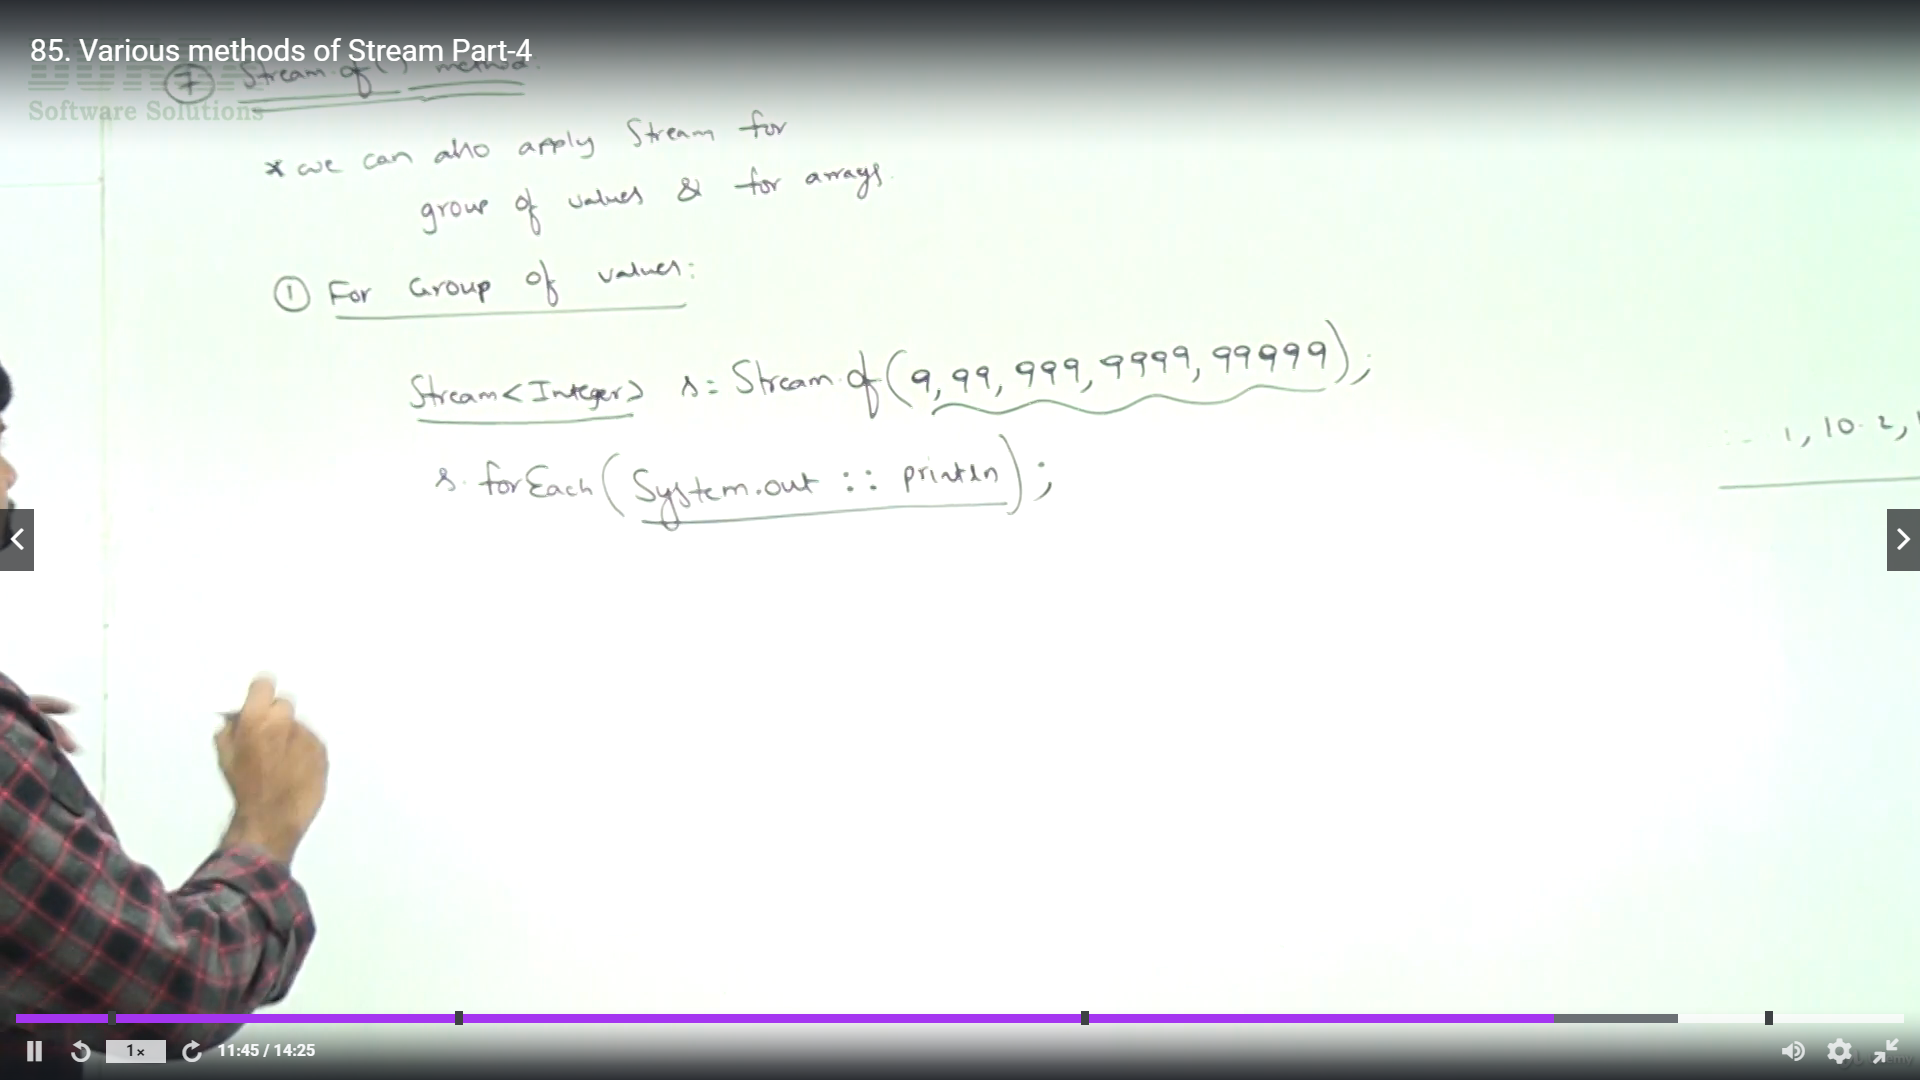 85. Various methods of Stream Part-4
⑦ Stream.of() method:
Software Solutions
* we can also apply Stream for
group of values & for arrays.
① For Group of values:
Stream<Integer> s = Stream.of(9,99,999,9999,99999);
s.forEach(System.out :: println);
1, 10. 2,
1x 11:45 / 14:25